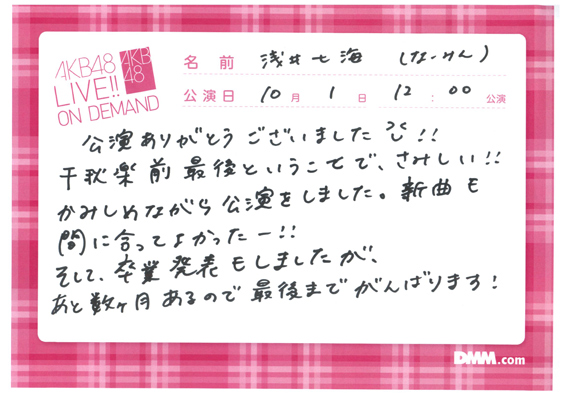 AKB48
LIVE!!
ON DEMAND
AKB
48
名前 浅井七海 (なーみん)
公演日 10月 1日 12:00 公演
公演ありがとうございました!!
千秋楽前最後ということで、さみしい!!
かみしめながら公演をしました。新曲も
間に合ってよかったー!!
そして、卒業発表もしましたが、
あと数ヶ月あるので最後までがんばります!
DMM.com